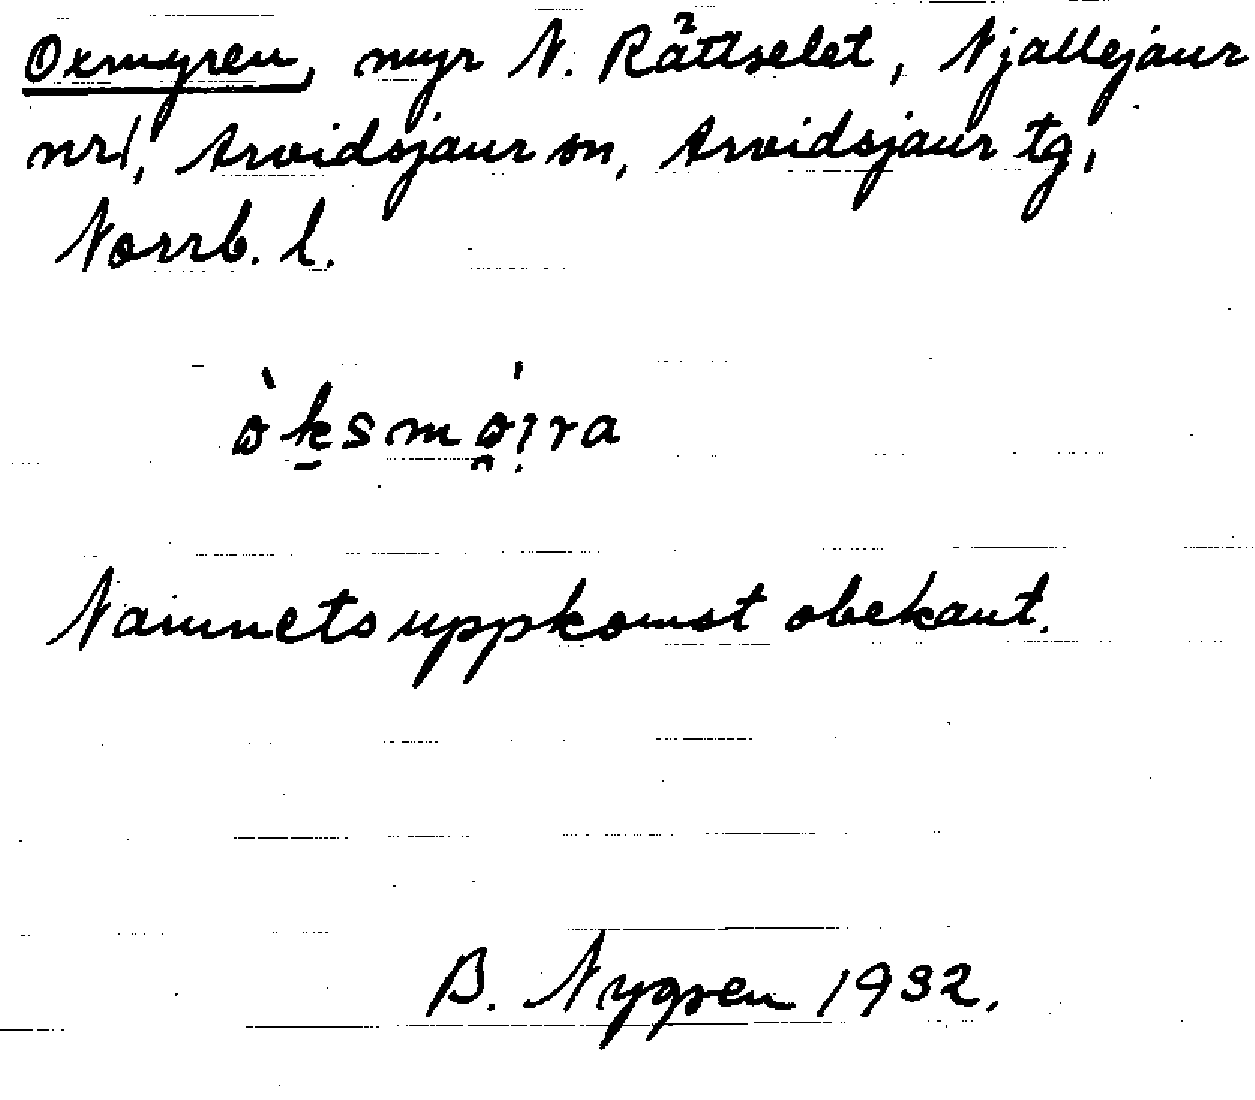 Oxmyren, myr N. Råttselet, Njallejaur
nr1, Arvidsjaur sn, Arvidsjaur tg,
Norrb. l.
òksmo̯ị́ra
Namnets uppkomst obekant.
B. Nygren 1932.